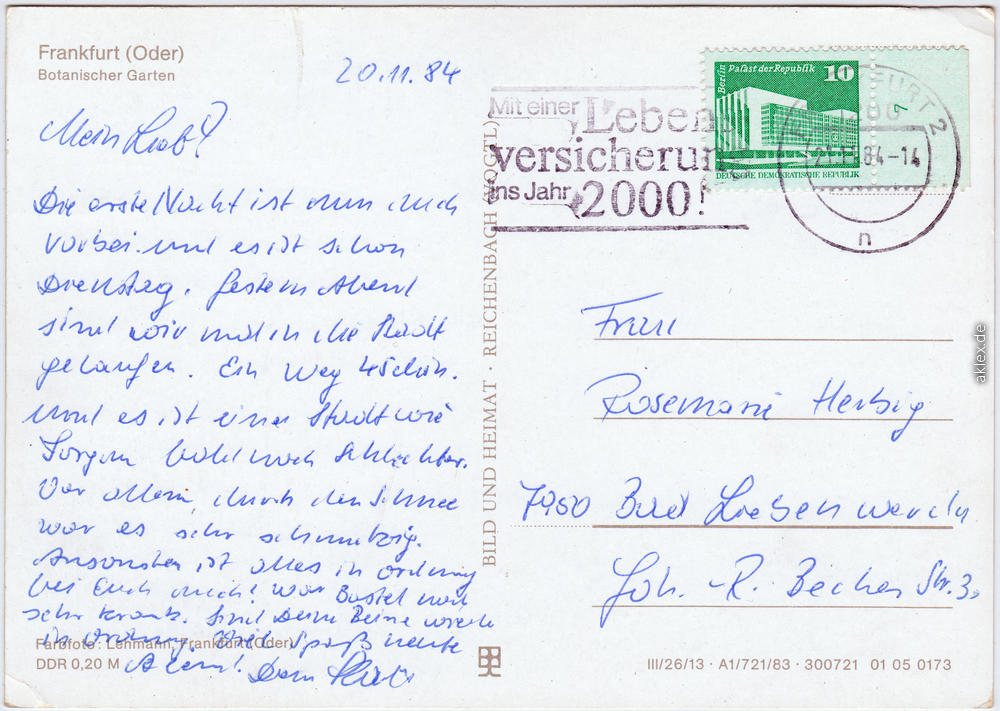 Frankfurt (Oder)
Botanischer Garten
20.11.84
Mein
Die erste Nacht ist nun auch
vorbei und es ist schon
Dienstag. Gestern Abend
sind wir mal in die Stadt
gelaufen. Ein Weg
und es ist eine Stadt wie
bald noch schlechter.
Vor allem durch den Schnee
war es sehr schmutzig.
Ansonsten ist alles in Ordnung
bei Euch auch? War noch
sehr krank. Sind Deine Beine wieder
in Ordnung. Viel Spaß heute
Abend! Dein
Farbfoto: Lehmann, Frankfurt (Oder)
DDR 0,20 M
BILD UND HEIMAT · REICHENBACH (VOGTL)
Mit einer Lebens
versicherun
ins Jahr 2000!
Berlin Palast der Republik 10
DEUTSCHE DEMOKRATISCHE REPUBLIK
FURT 2
84-14
n
Frau
Rosemarie Herbig
7950 Bad Liebenwerda
Joh. - R. Becher Str. 3
III/26/13 · A1/721/83 · 300721 01 05 0173
aklex.de